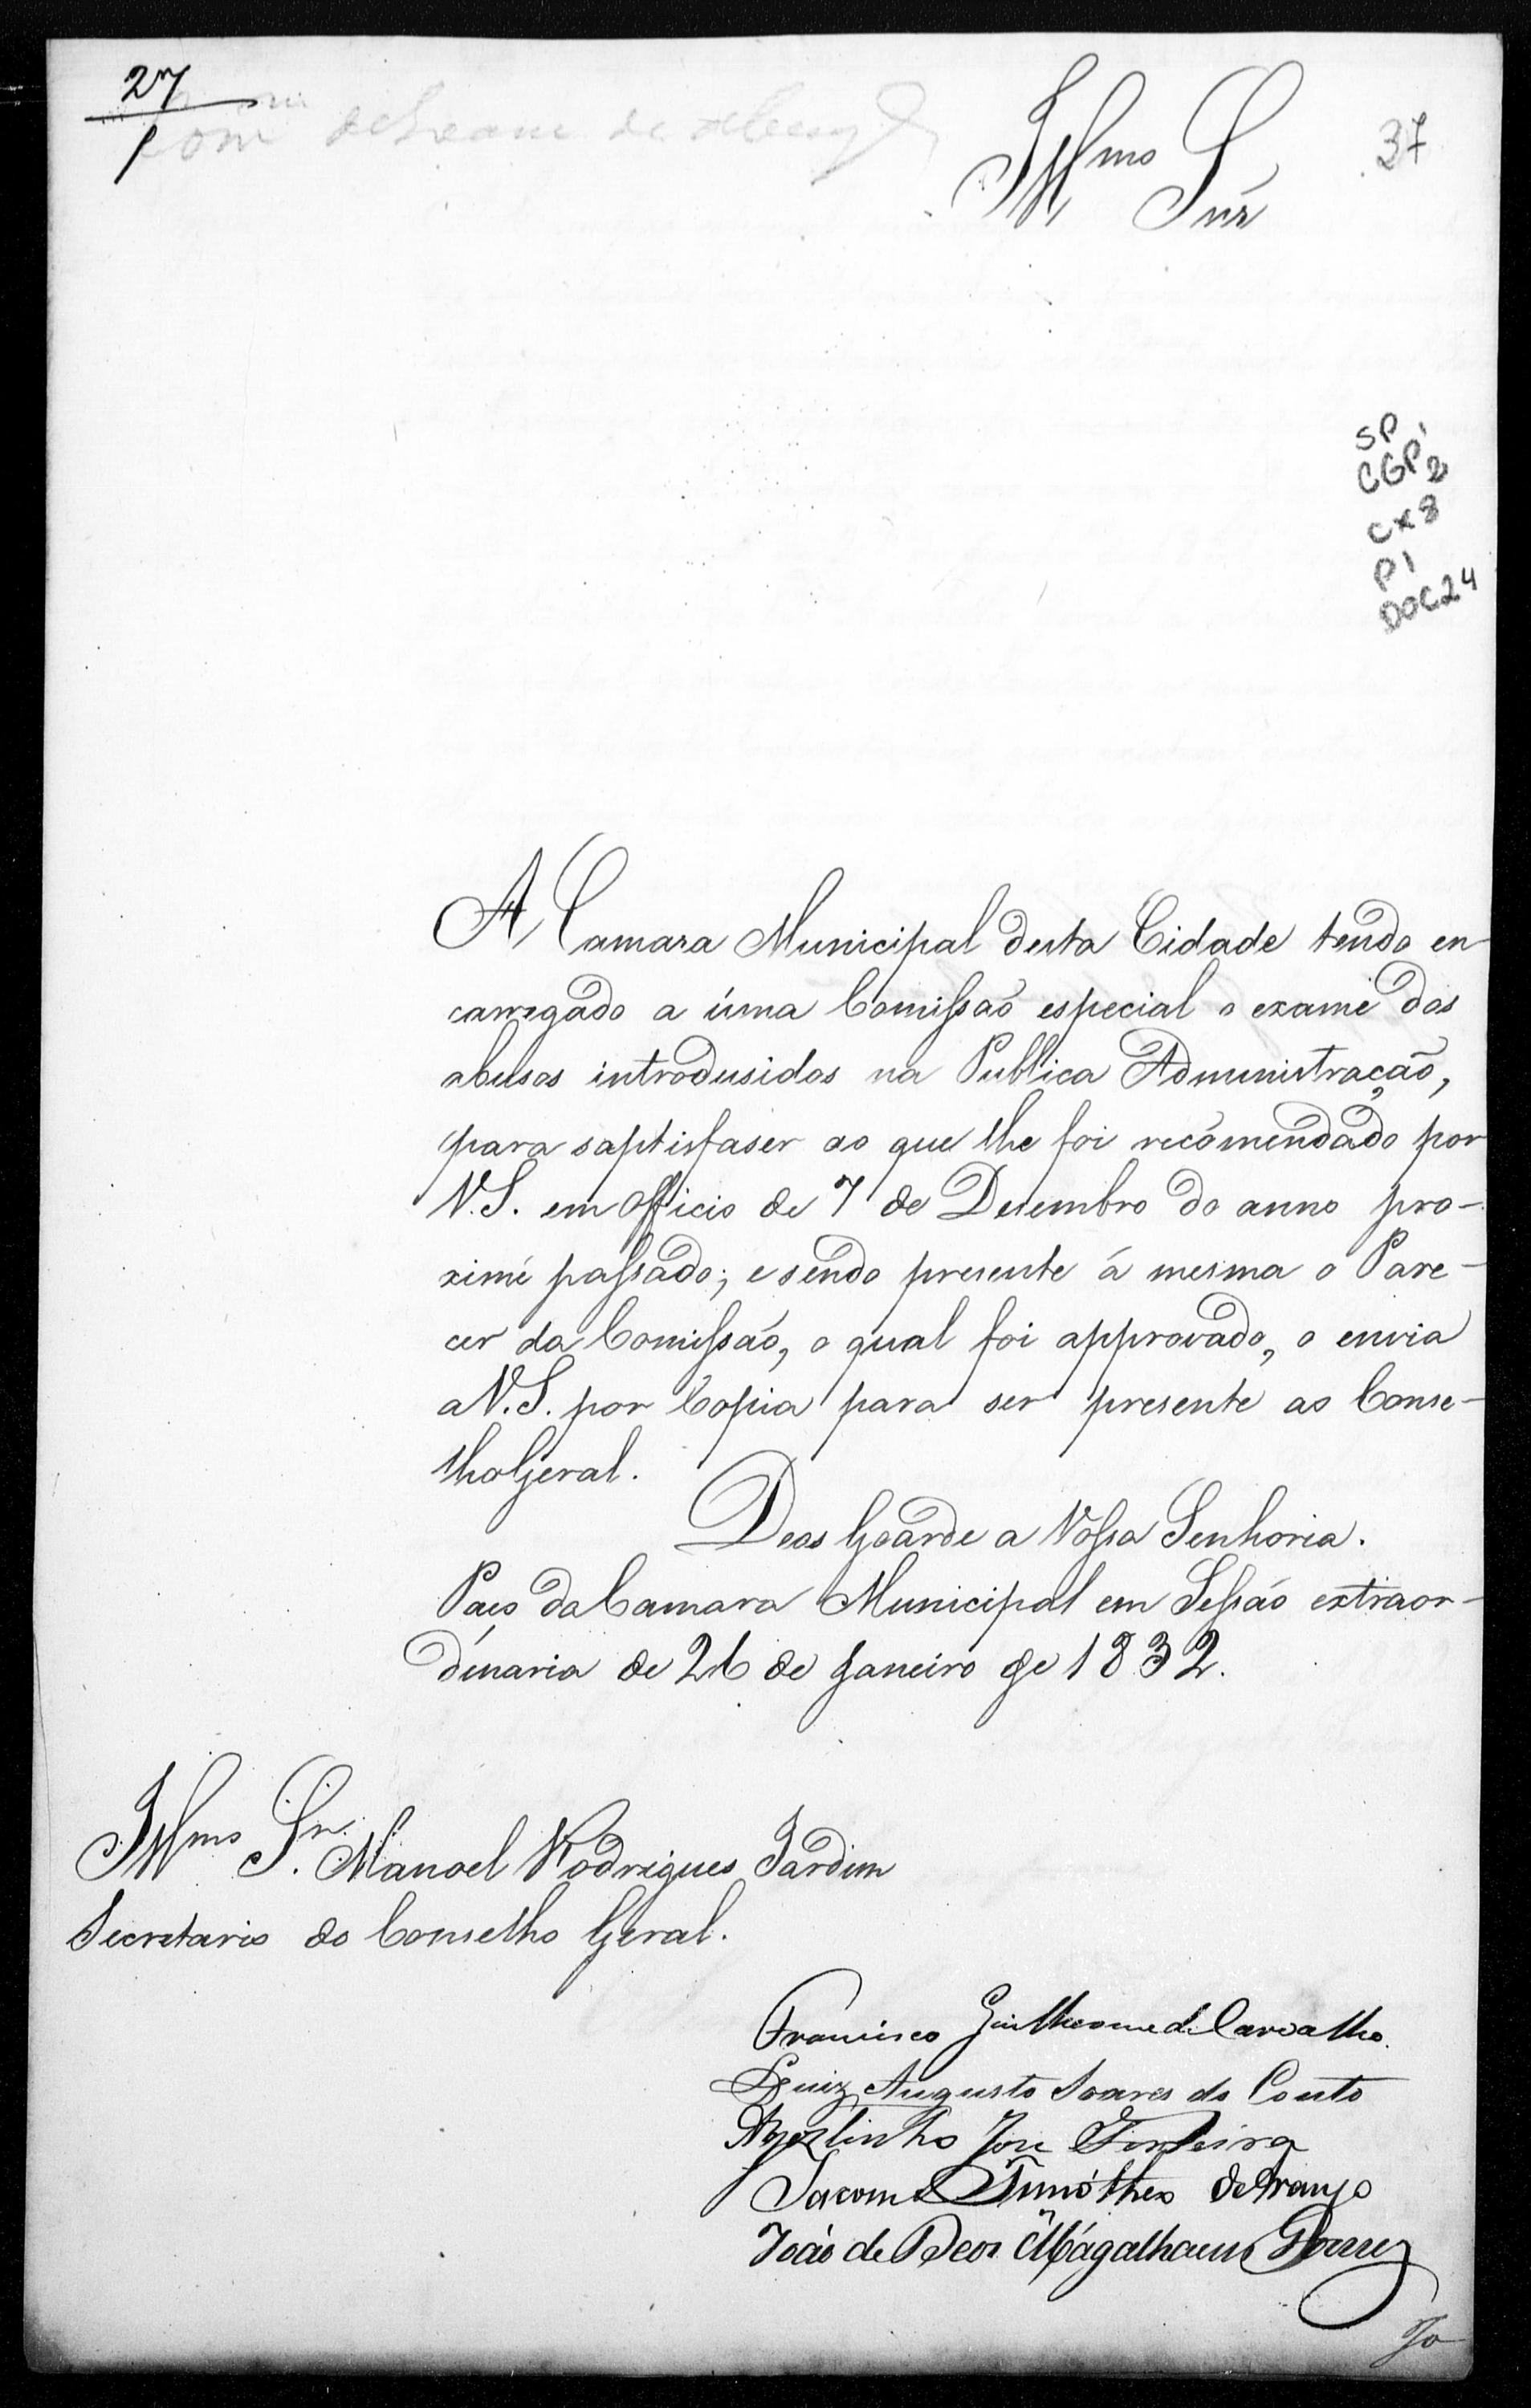 27
1
Illmo Snr
37
SP
CGP2
CX8
P1
DOC24
A Camara Municipal desta Cidade tendo en-
carregado a úma Comissaõ especial o exame dos
abusos introdusidos na Publica Administração,
para saptisfaser ao que lhe foi recomendado por
V.S. em Officio de 7 de Desembro do anno pro-
ximé passado; e sendo presente á mesma o Pare-
cer da Comissaõ, o qual foi approvado, o envia
a V.S. por Copia para ser presente ao Conse-
lho Geral.
Deos Goarde a Vossa Senhoria.
Paço da Camara Municipal em Sessaõ extraor-
dinaria de 26 de Janeiro de 1832.
Illmo Snr. Manoel Rodrigues Jardim
Secretario do Conselho Geral.
Francisco Guilherme de Carvalho.
Luiz Augusto Soares do Couto
José
Timótheo de Araujo
João de Deos Magalhaens
Jo